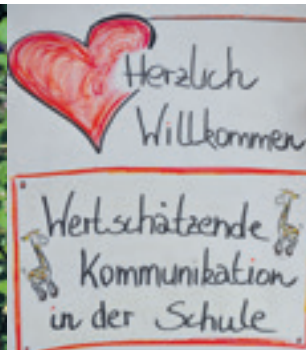 Herzlich
Willkommen
Wertschätzende
Kommunikation
in der Schule